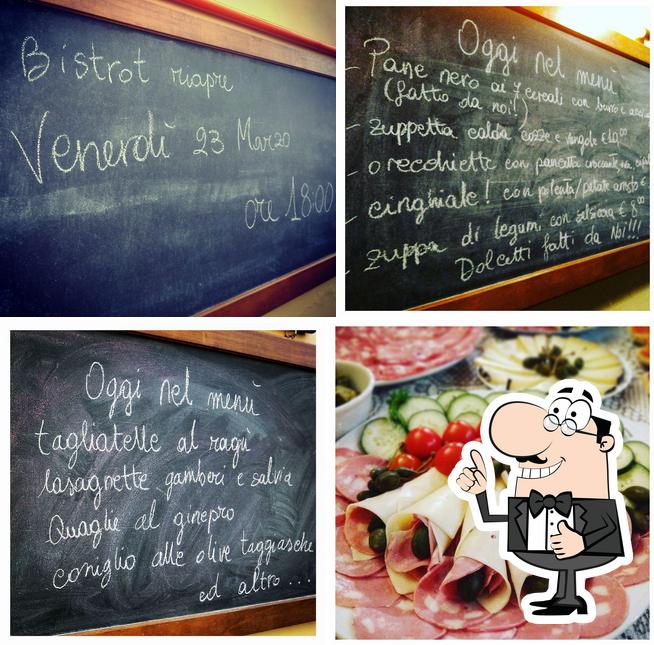 Bistrot riapre
Venerdì 23 Marzo
ore 18:00
Oggi nel menù
- Pane nero ai 7 cereali con burro e
(fatto da noi!)
- zuppetta calda cozze e vongole € 10,00
- orecchiette con pancetta croccante
- cinghiale! con polenta/patate arrosto €
- zuppa di legumi con salsiccia € 8,00
Dolcetti fatti da Noi!!!
Oggi nel menù
tagliatelle al ragù
lasagnette gamberi e salvia
Quaglie al ginepro
coniglio alle olive taggiasche
ed altro...